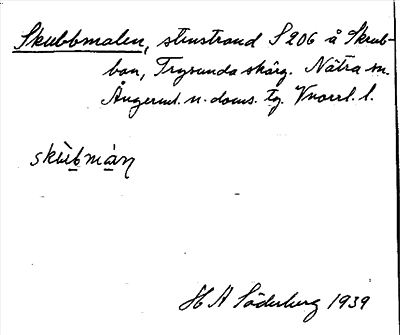 Skubbmalen, stenstrand S 206 å Skrub-
ban, Trysunda skärg. Nätra sn.
Ångerml. n. doms. tg. Vnorrl. l.
skùb̲mà̲n
H A Söderberg 1939